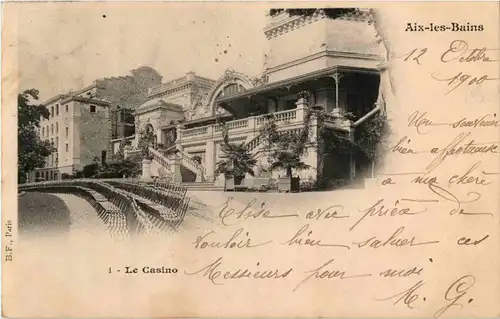 Aix-les-Bains
12 Octobre
1900
Un souvenir
bien affectueux
a ma chère
Elise avec prière de
vouloir bien saluer ces
Messieurs pour moi
M. G.
1 - Le Casino
B. F., Paris